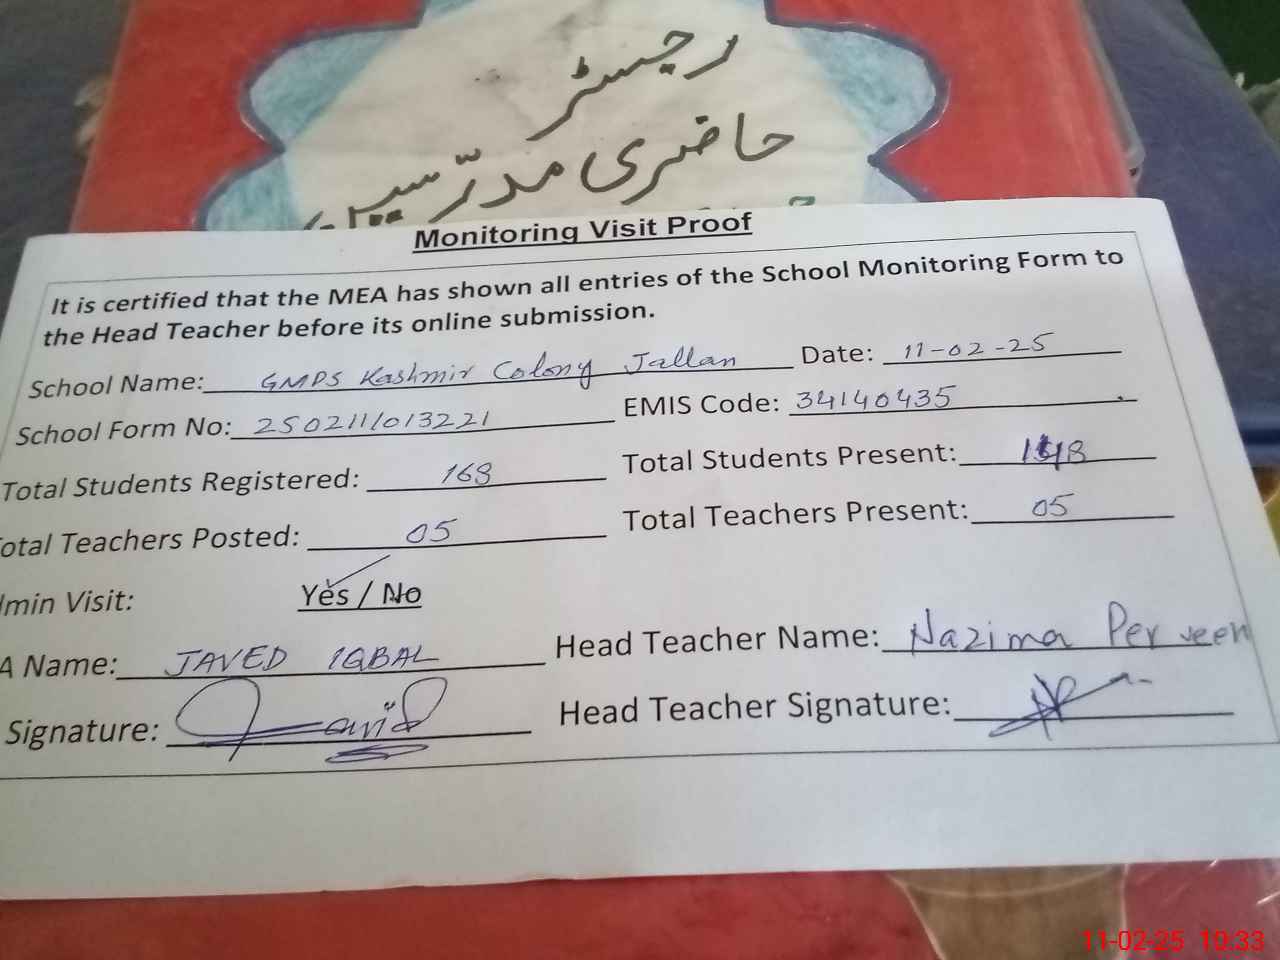 رجسٹر
حاضری مدرّسین
Monitoring Visit Proof
It is certified that the MEA has shown all entries of the School Monitoring Form to
the Head Teacher before its online submission.
School Name: GMPS Kashmir Colony Jallan Date: 11-02-25
School Form No: 250211013221 EMIS Code: 34140435
Total Students Registered: 168 Total Students Present:
otal Teachers Posted: 05 Total Teachers Present: 05
dmin Visit: Yes / No
A Name: JAVED IQBAL Head Teacher Name: Nazima Perveen
Signature: Javid Head Teacher Signature:
11-02-25 10:33